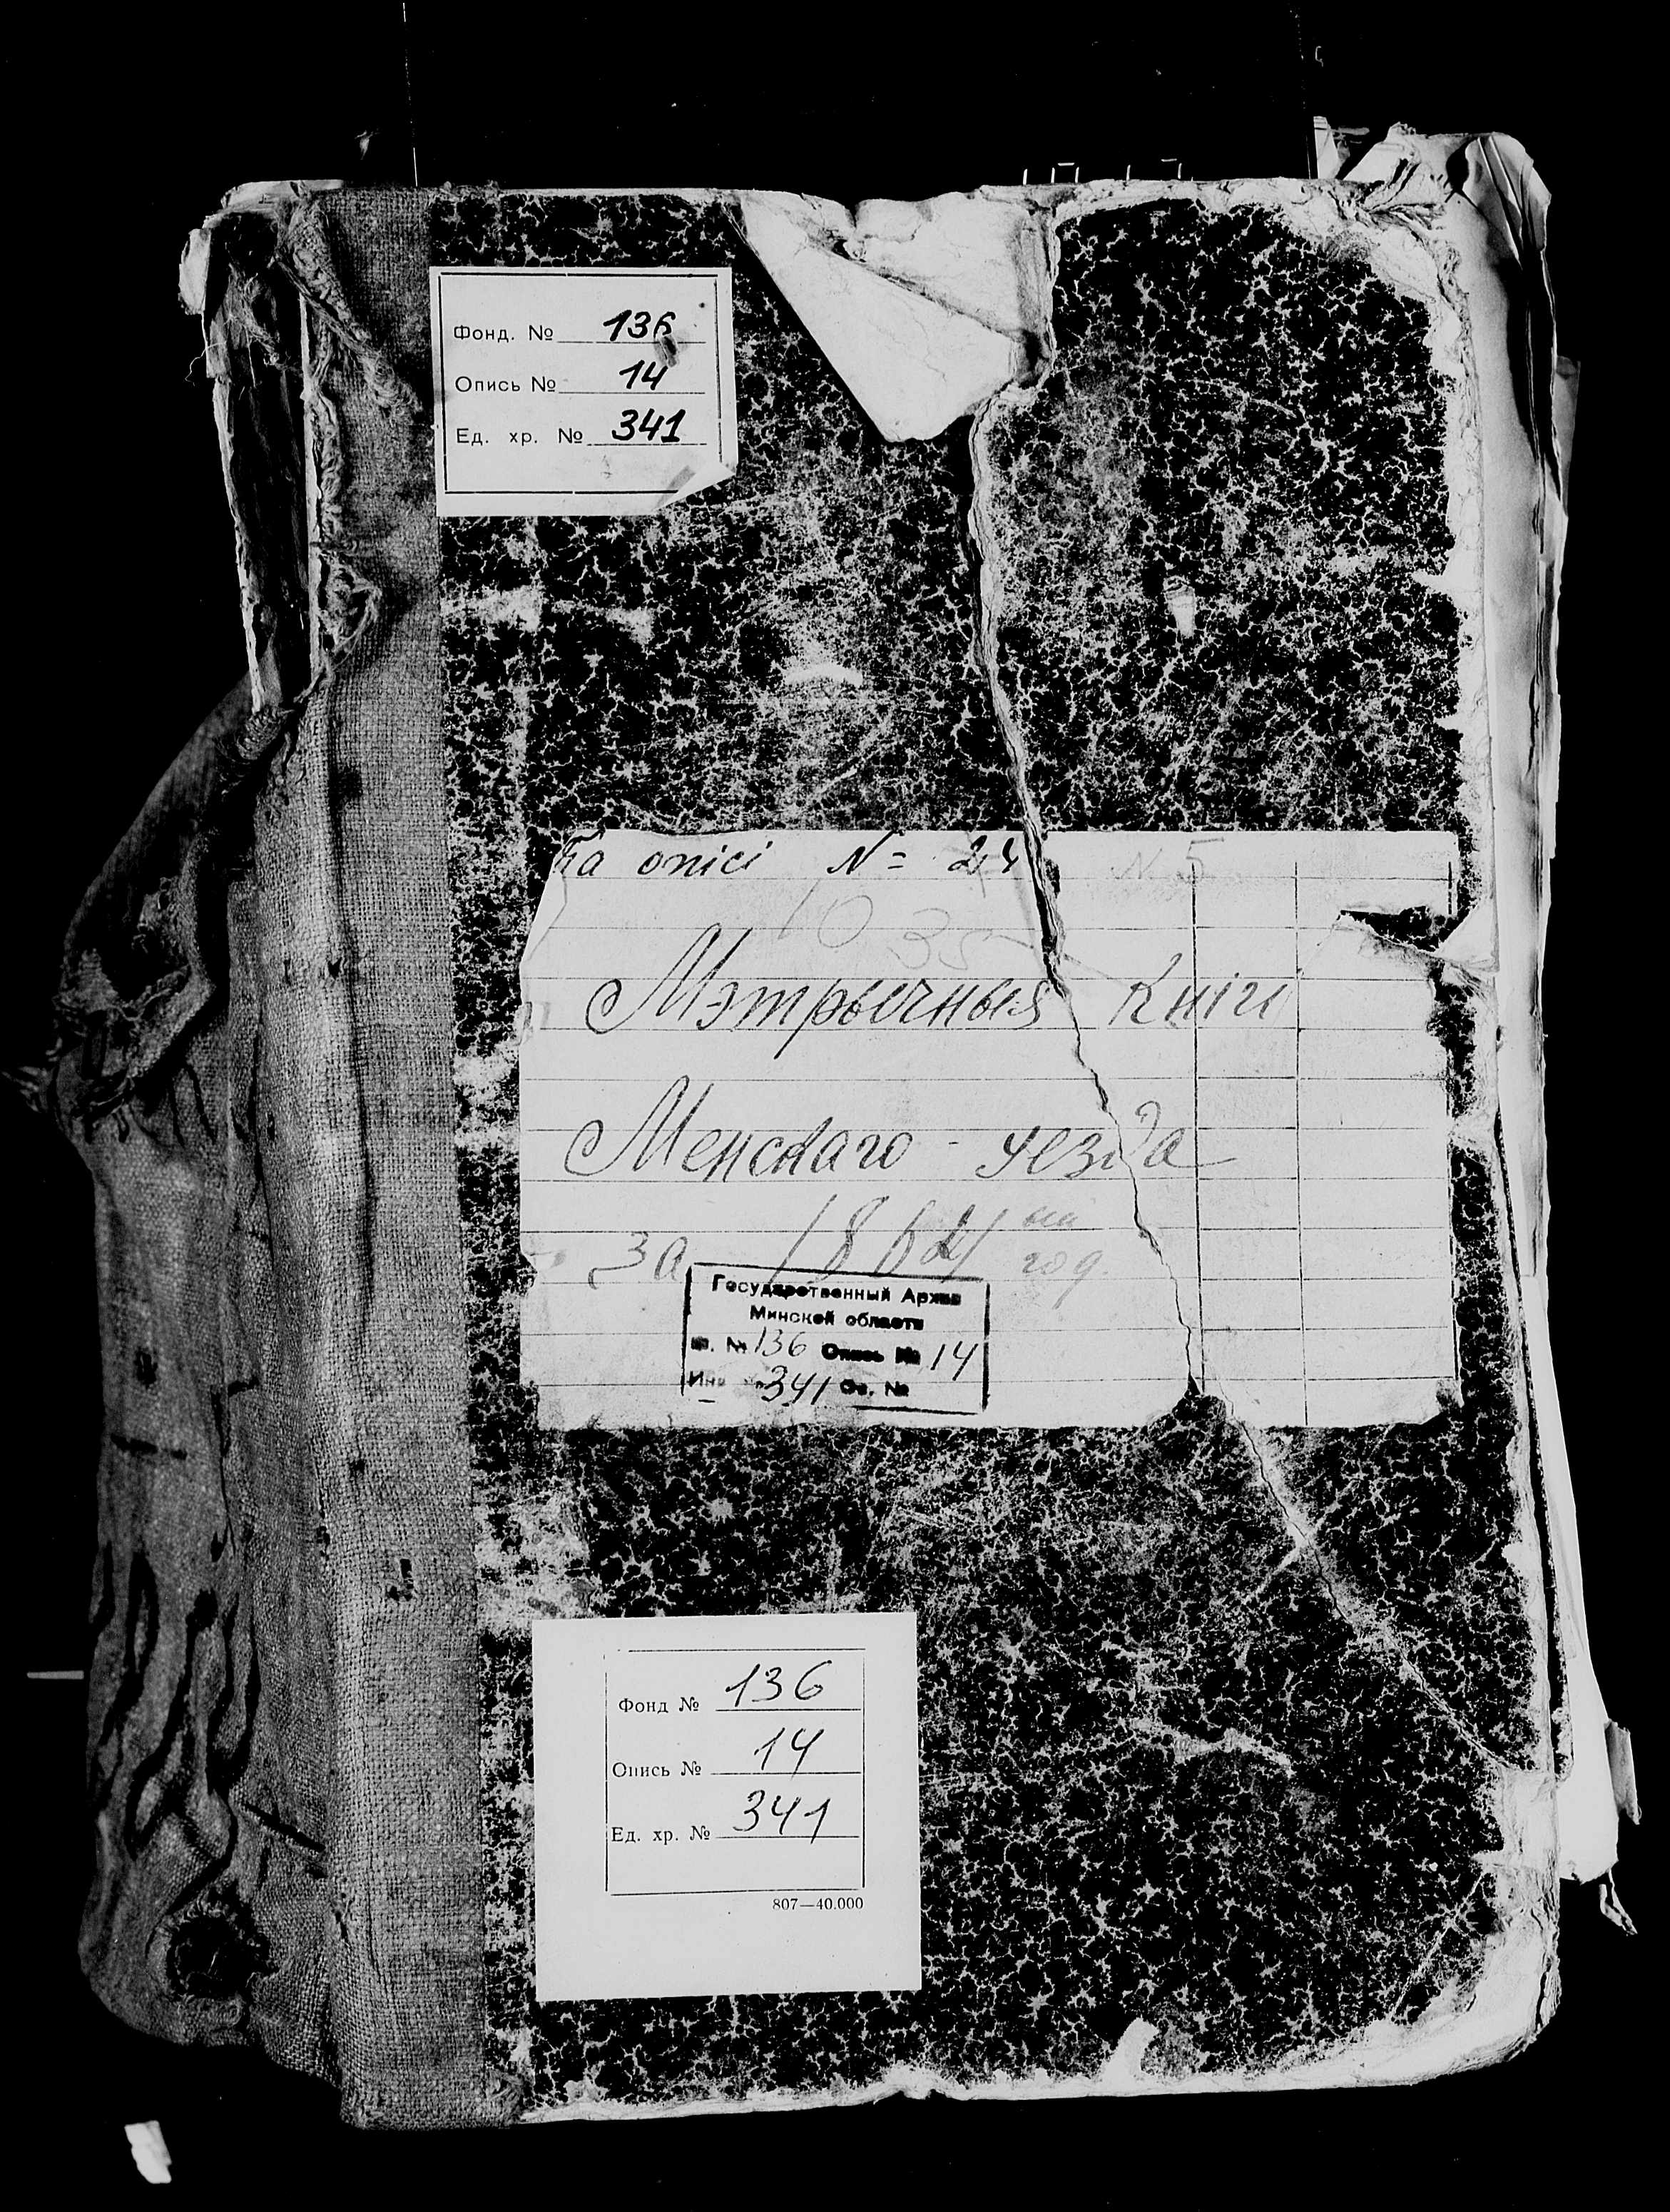 Фонд. № 136
Опись № 14
Ед. хр. № 341
па опісі № = 24
№ 5
10 35
Мэтрычныя Кнігі
Менскаго - уезда
За 1862 год.
Государственный Архив
Минской области
Ф. № 136 Опись № 14
Инв № 341 Св. №
Фонд № 136
Опись № 14
Ед. хр. № 341
807—40.000